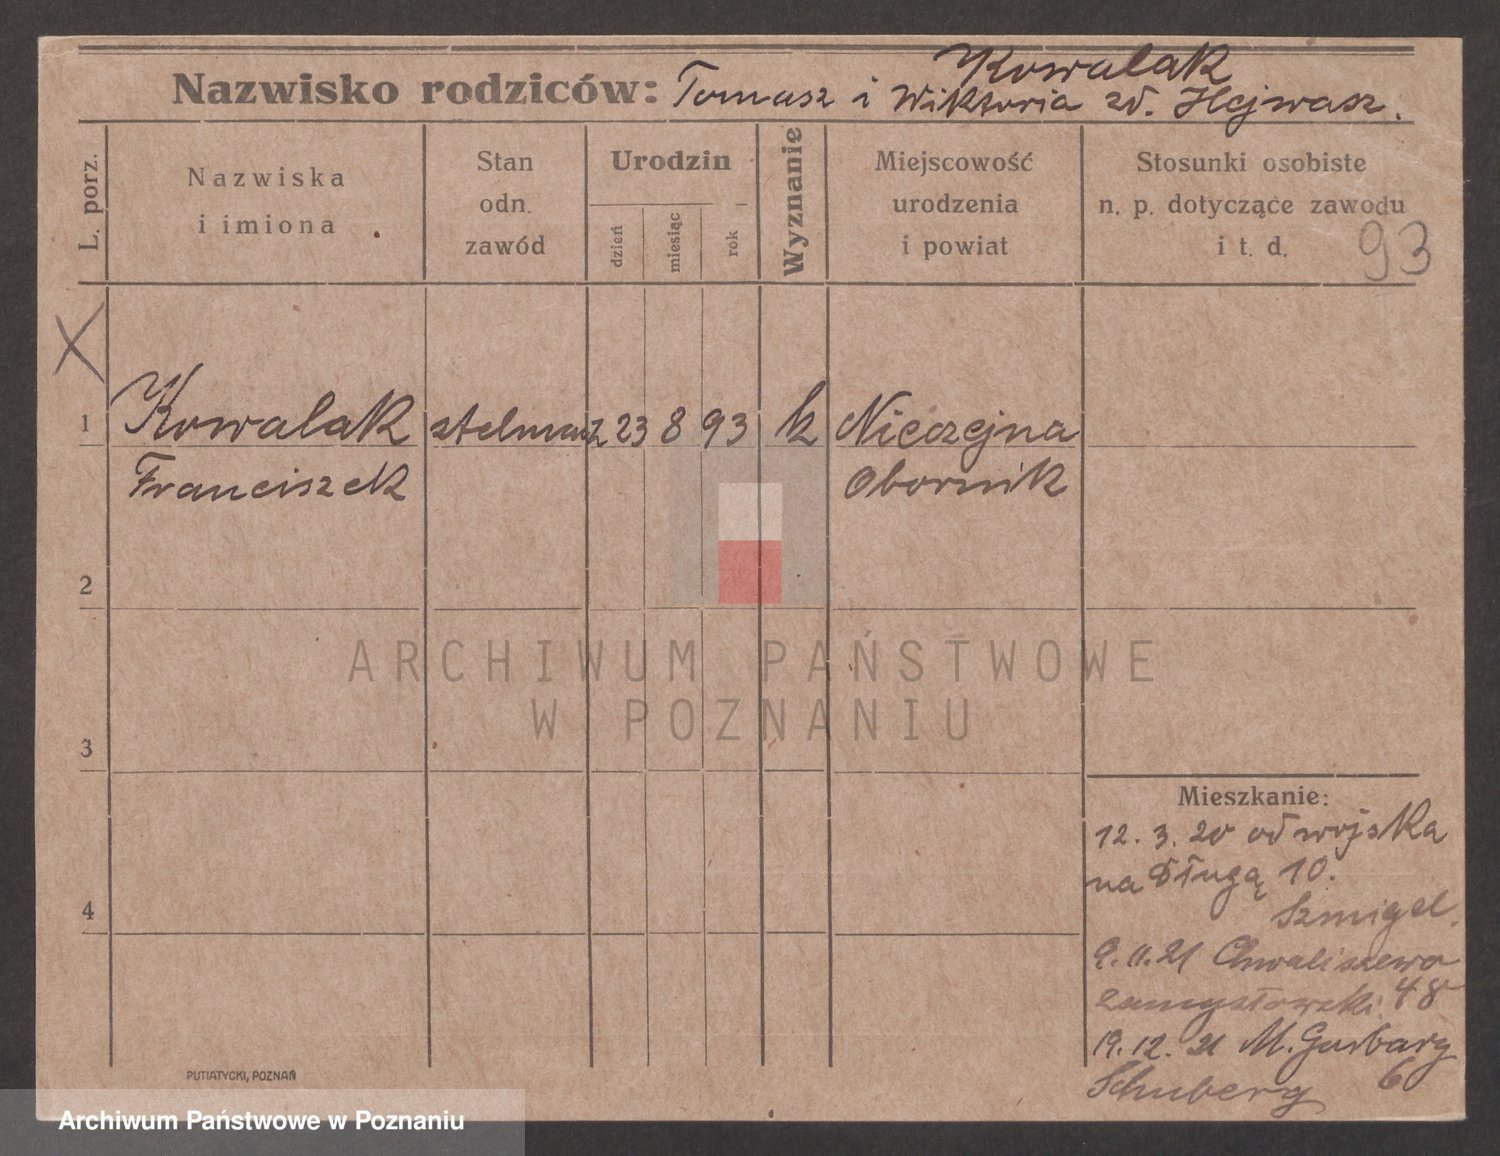 Kowalak
Nazwisko rodziców: Tomasz i Wiktoria zd. Hejwasz.
L. porz.
Nazwiska
i imiona
Stan
odn.
zawód
Urodzin
dzień
miesiąc
rok
Wyznanie
Miejscowość
urodzenia
i powiat
Stosunki osobiste
n. p. dotyczące zawodu
i t. d.
93
X
1 Kowalak stelmach 23 8 93 k
Franciszek Obornik
2
ARCHIWUM PAŃSTWOWE
W POZNANIU
3
Mieszkanie:
12. 3. 20 od wojska
na Długą 10.
4
Szmigel.
9.11.21 Chwaliszewo
48
19.12.21 M. Garbary
Schuberg 6
PUTIATYCKI, POZNAŃ
Archiwum Państwowe w Poznaniu